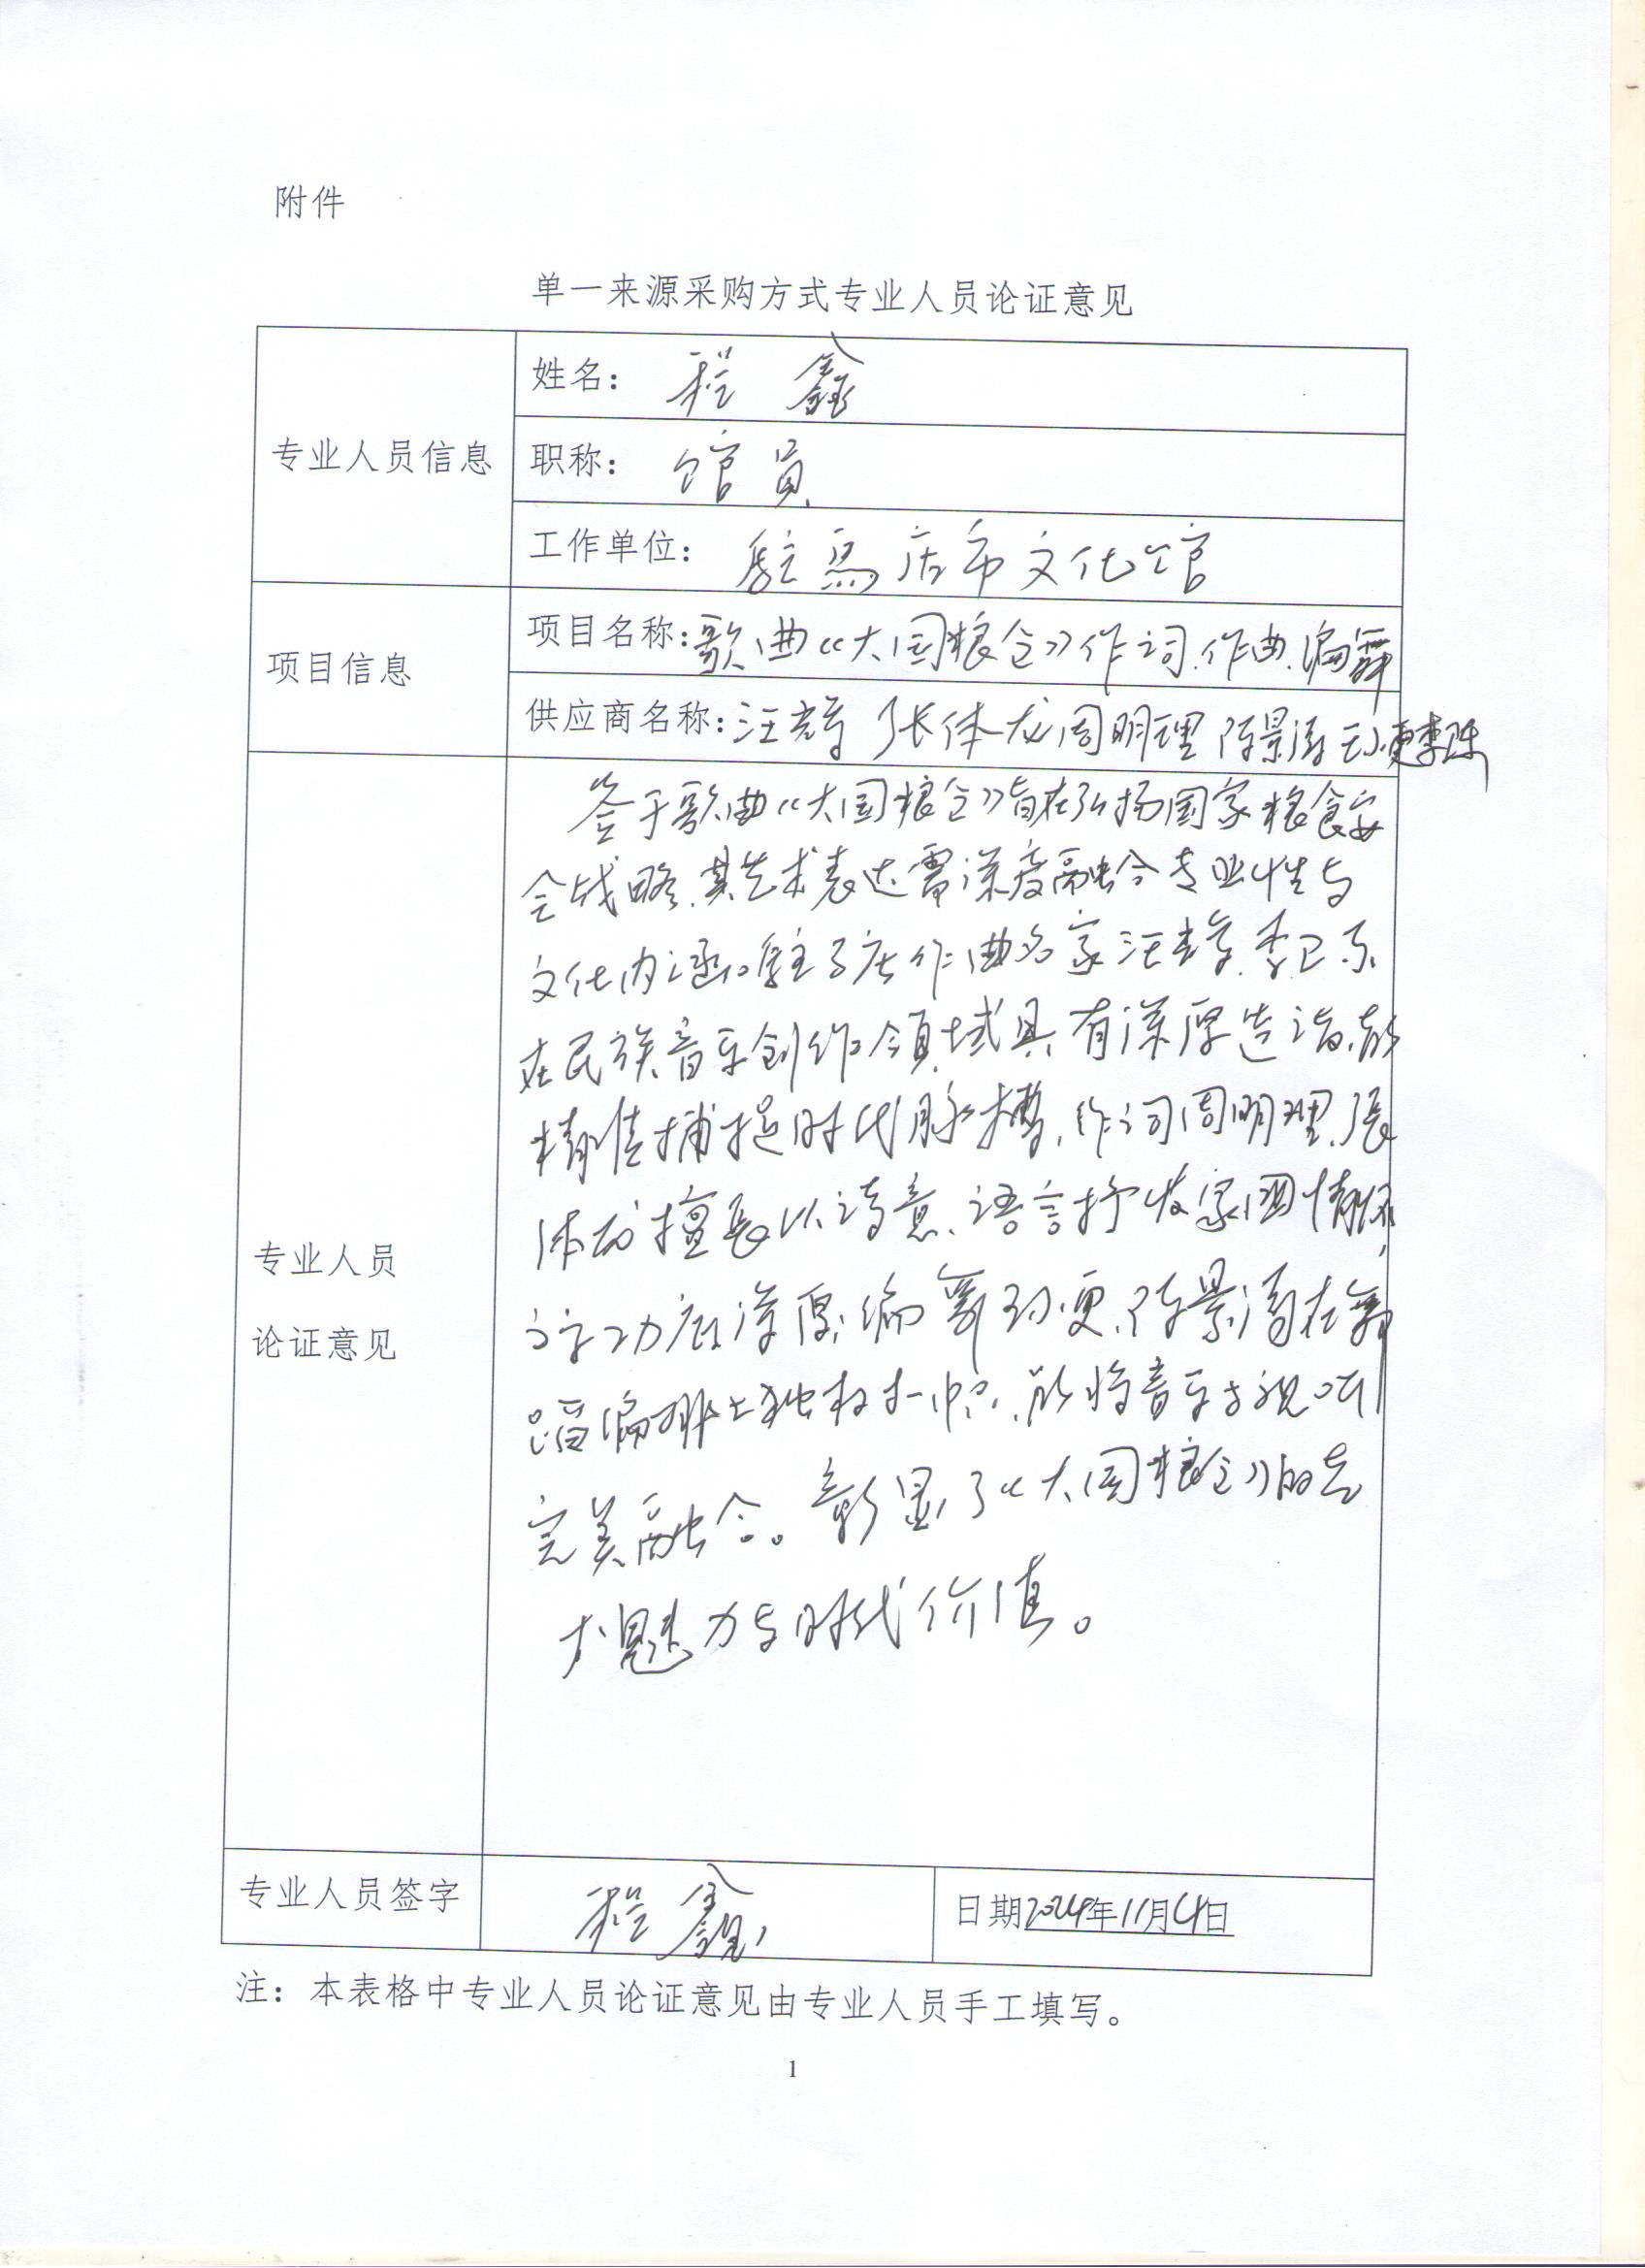 附件
单一来源采购方式专业人员论证意见
专业人员信息
姓名： 程鑫
职称： 馆员
工作单位： 駐馬店市文化馆
项目信息
项目名称：歌曲《大国粮仓》作词.作曲.编舞
供应商名称：汪 张体龙 周明理 陈景
专业人员
论证意见
鉴于歌曲《大国粮仓》旨在弘扬国家粮食安
全战略.其艺术表达需深度融合专业性与
文化内涵。驻马店作曲名家汪
在民族音乐创作领域具有深厚造诣.能
精准捕捉时代脉搏.作词周明理.张
体龙擅长以诗意语言抒发家国情怀,
文字功底深厚.编舞 更.陈景 在舞
蹈编排上独树一帜.能将音乐与视听
完美融合。彰显了《大国粮仓》的艺
术魅力与时代价值。
专业人员签字
程鑫
日期2024年11月4日
注：本表格中专业人员论证意见由专业人员手工填写。
1